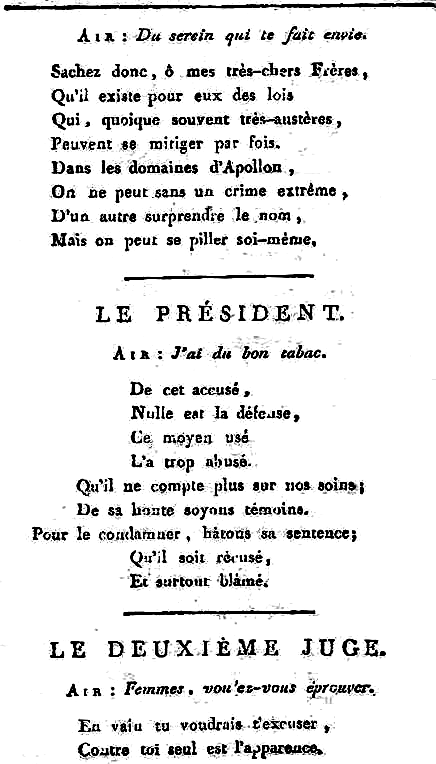 AIR : Du serein qui te fait envie.
Sachez donc, ô mes très-chers Frères,
Qu'il existe pour eux des lois
Qui, quoique souvent très-austères,
Peuvent se mitiger par fois.
Dans les domaines d'Apollon,
On ne peut sans un crime extrême,
D'un autre surprendre le nom,
Mais on peut se piller soi-même.
LE PRÉSIDENT.
AIR : J'ai du bon tabac.
De cet accusé,
Nulle est la défense,
Ce moyen usé
L'a trop abusé.
Qu'il ne compte plus sur nos soins;
De sa honte soyons témoins.
Pour le condamner, hâtons sa sentence;
Qu'il soit récusé,
Et surtout blâmé.
LE DEUXIÈME JUGE.
AIR : Femmes, voulez-vous éprouver.
En vain tu voudrais t'excuser,
Contre toi seul est l'apparence.